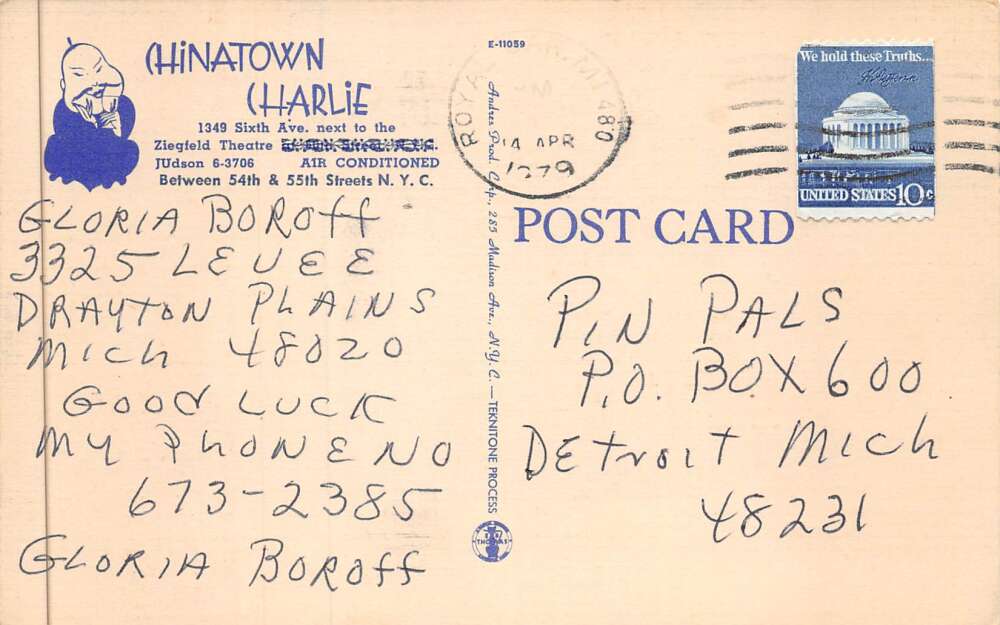 CHINATOWN
CHARLIE
1349 Sixth Ave. next to the
Ziegfeld Theatre
JUdson 6-3706 AIR CONDITIONED
Between 54th & 55th Streets N. Y. C.
GLORIA BOROFF
3325 LEVEE
DRAYTON PLAINS
MICH 48020
GOOD LUCK
MY PHONE NO
673-2385
GLORIA BOROFF
E-11059
Andres Prod. Corp., 285 Madison Ave., N.Y.C. — TEKNITONE PROCESS
THOMAS
ROYA MI 480
14 APR
1979
We hold these Truths...
UNITED STATES 10c
POST CARD
PIN PALS
P.O. BOX 600
DETROIT MICH
48231